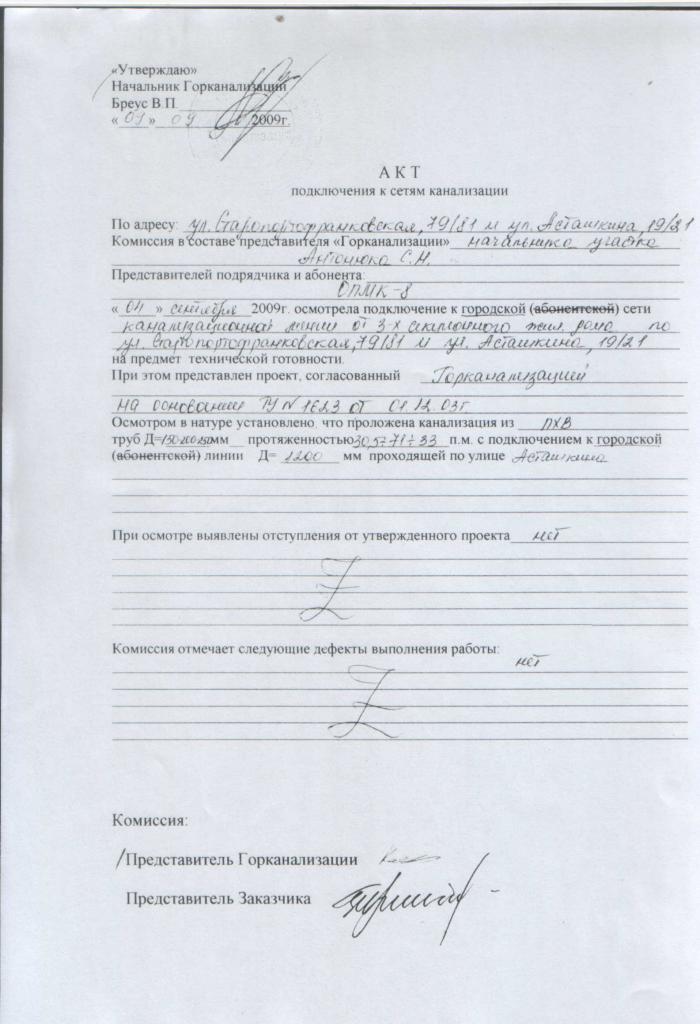 «Утверждаю»
Начальник Горканализации
Бреус В.П.
« 07 » 09 2009г.
А К Т
подключения к сетям канализации
По адресу: ул. Старопортофранковская, 79/81 и ул. Асташкина, 19/21
Комиссия в составе представителя «Горканализации» начальника участка
Антонюка С.Н.
Представителей подрядчика и абонента:
ОПМК-8
« 04 » сентября 2009г. осмотрела подключение к городской (абонентской) сети
канализационной линии от 3-х секционного жил. дома по
ул. Старопортофранковская, 79/81 и ул. Асташкина, 19/21
на предмет технической готовности.
При этом представлен проект, согласованный Горканализацией
на основании ТУ № 1623 от 01.12.03г
Осмотром в натуре установлено, что проложена канализация из ПХВ
труб Д= мм протяженностью п.м. с подключением к городской
(абонентской) линии Д= 1200 мм проходящей по улице Асташкина
При осмотре выявлены отступления от утвержденного проекта нет
Комиссия отмечает следующие дефекты выполнения работы:
нет
Комиссия:
Представитель Горканализации
Представитель Заказчика